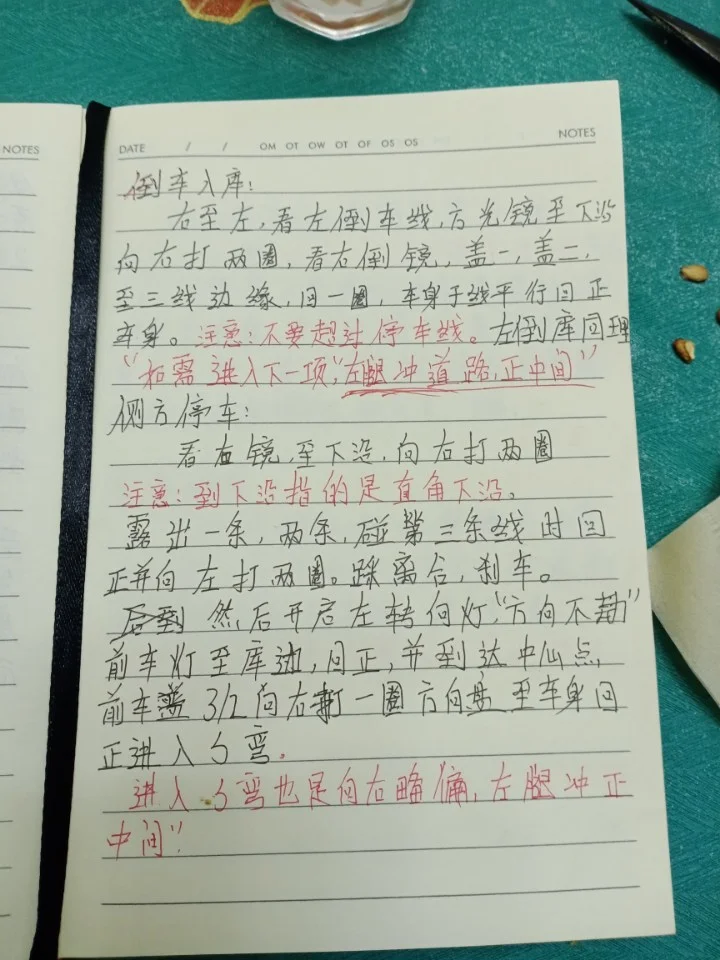 NOTES
DATE / / OM OT OW OT OF OS OS NOTES
倒车入库:
右至左,看左倒车线,方光镜至下沿
向右打两圈,看右倒镜,盖一,盖二,
至三线边缘,回一圈,车身于线平行回正
车身。注意:不要超过停车线。左倒库同理
“如需进入下一项,左腿冲道路,正中间”
侧方停车:
看右镜,至下沿,向右打两圈
注意:到下沿指的是直角下沿。
露出一条,两条,碰第三条线时回
正并向左打两圈。踩离合,刹车。
然后开启左转向灯,“方向不动”
前车灯至库边,回正,并到达中心点,
前车盖3/2向右打一圈方向盘至车身回
正进入S弯。
进入S弯也是向右略偏,左腿冲正
中间”